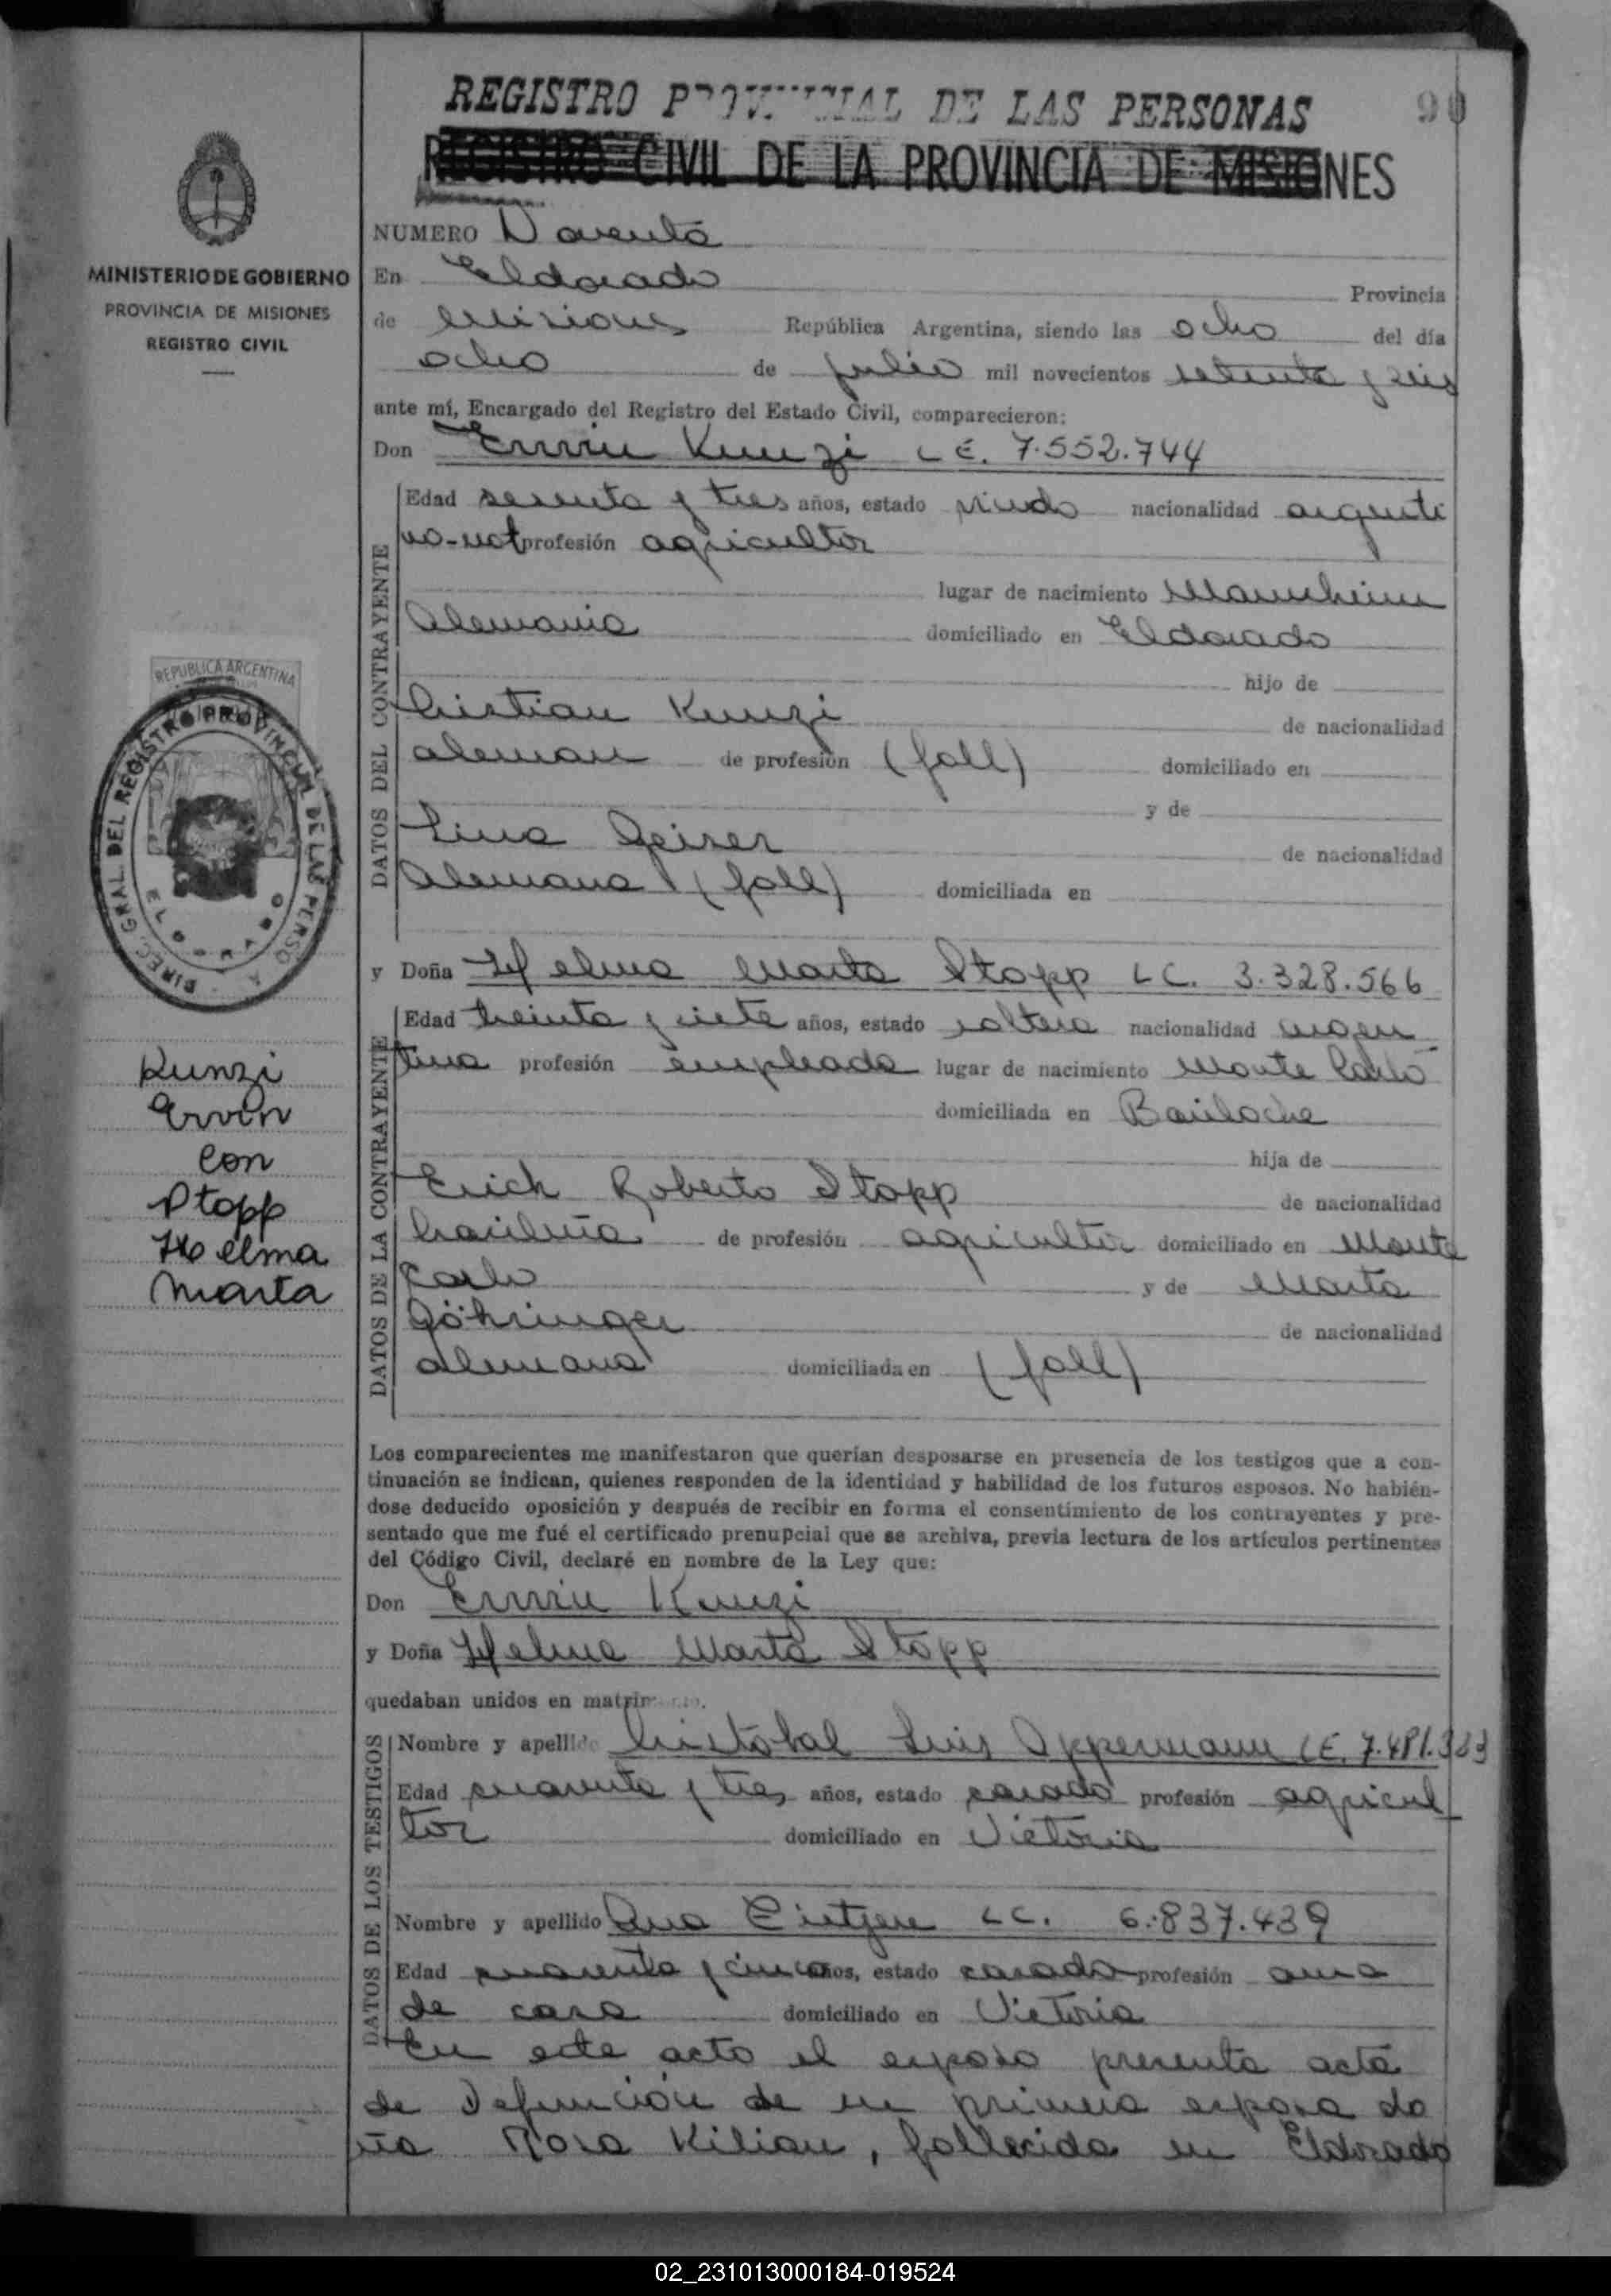 REGISTRO PROVINCIAL DE LAS PERSONAS
90
REGISTRO CIVIL DE LA PROVINCIA DE MISIONES
MINISTERIO DE GOBIERNO
PROVINCIA DE MISIONES
REGISTRO CIVIL
NUMERO Noventa
En Eldorado Provincia
de Misiones República Argentina, siendo las ocho del día
ocho de julio mil novecientos setenta y seis
ante mí, Encargado del Registro del Estado Civil, comparecieron:
Don Erwin Kunzi L.E. 7.552.744
DATOS DEL CONTRAYENTE
Edad sesenta y tres años, estado viudo nacionalidad argenti
no-nat profesión agricultor
lugar de nacimiento Mannheim
Alemania domiciliado en Eldorado
hijo de
Cristian Kunzi de nacionalidad
aleman de profesión (fall) domiciliado en
y de
Lina Geiser de nacionalidad
Alemana (fall) domiciliada en
REPUBLICA ARGENTINA
DIREC. GRAL. DEL REGISTRO PROVINCIAL DE LAS PERSONAS
ELDORADO
y Doña Helma Marta Stopp L.C. 3.328.566
DATOS DE LA CONTRAYENTE
Edad treinta y siete años, estado soltera nacionalidad argen
tina profesión empleada lugar de nacimiento Monte Carlo
domiciliada en Bariloche
hija de
Erich Roberto Stopp de nacionalidad
brasileña de profesión agricultor domiciliado en Monte
Carlo y de Marta
Göhringer de nacionalidad
alemana domiciliada en (fall)
Kunzi
Ervin
con
Stopp
Helma
Marta
Los comparecientes me manifestaron que querían desposarse en presencia de los testigos que a con-
tinuación se indican, quienes responden de la identidad y habilidad de los futuros esposos. No habién-
dose deducido oposición y después de recibir en forma el consentimiento de los contrayentes y pre-
sentado que me fué el certificado prenupcial que se archiva, previa lectura de los artículos pertinentes
del Código Civil, declaré en nombre de la Ley que:
Don Erwin Kunzi
y Doña Helma Marta Stopp
quedaban unidos en matrimonio.
DATOS DE LOS TESTIGOS
Nombre y apellido Cristóbal Luis Oppermann L.E. 7.481.383
Edad cuarenta y tres años, estado casado profesión agricul
tor domiciliado en Victoria
Nombre y apellido Ana L.C. 6.837.439
Edad cuarenta y cinco años, estado casada profesión ama
de casa domiciliado en Victoria
En este acto el esposo presenta acta
de Defunción de su primera esposa do
ña Rosa Kilian, fallecida en Eldorado
02_231013000184-019524